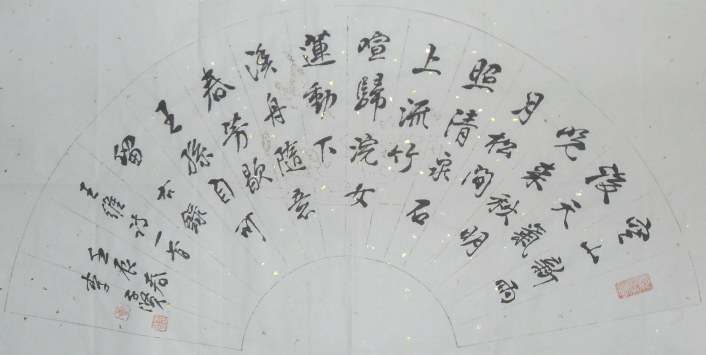 空山新雨
後天氣
晚來秋明
月松間
照清泉石
上流竹
喧歸浣女
蓮動下
溪舟隨意
春芳歇
王孫自可
留右錄
王維詩一首
壬辰春